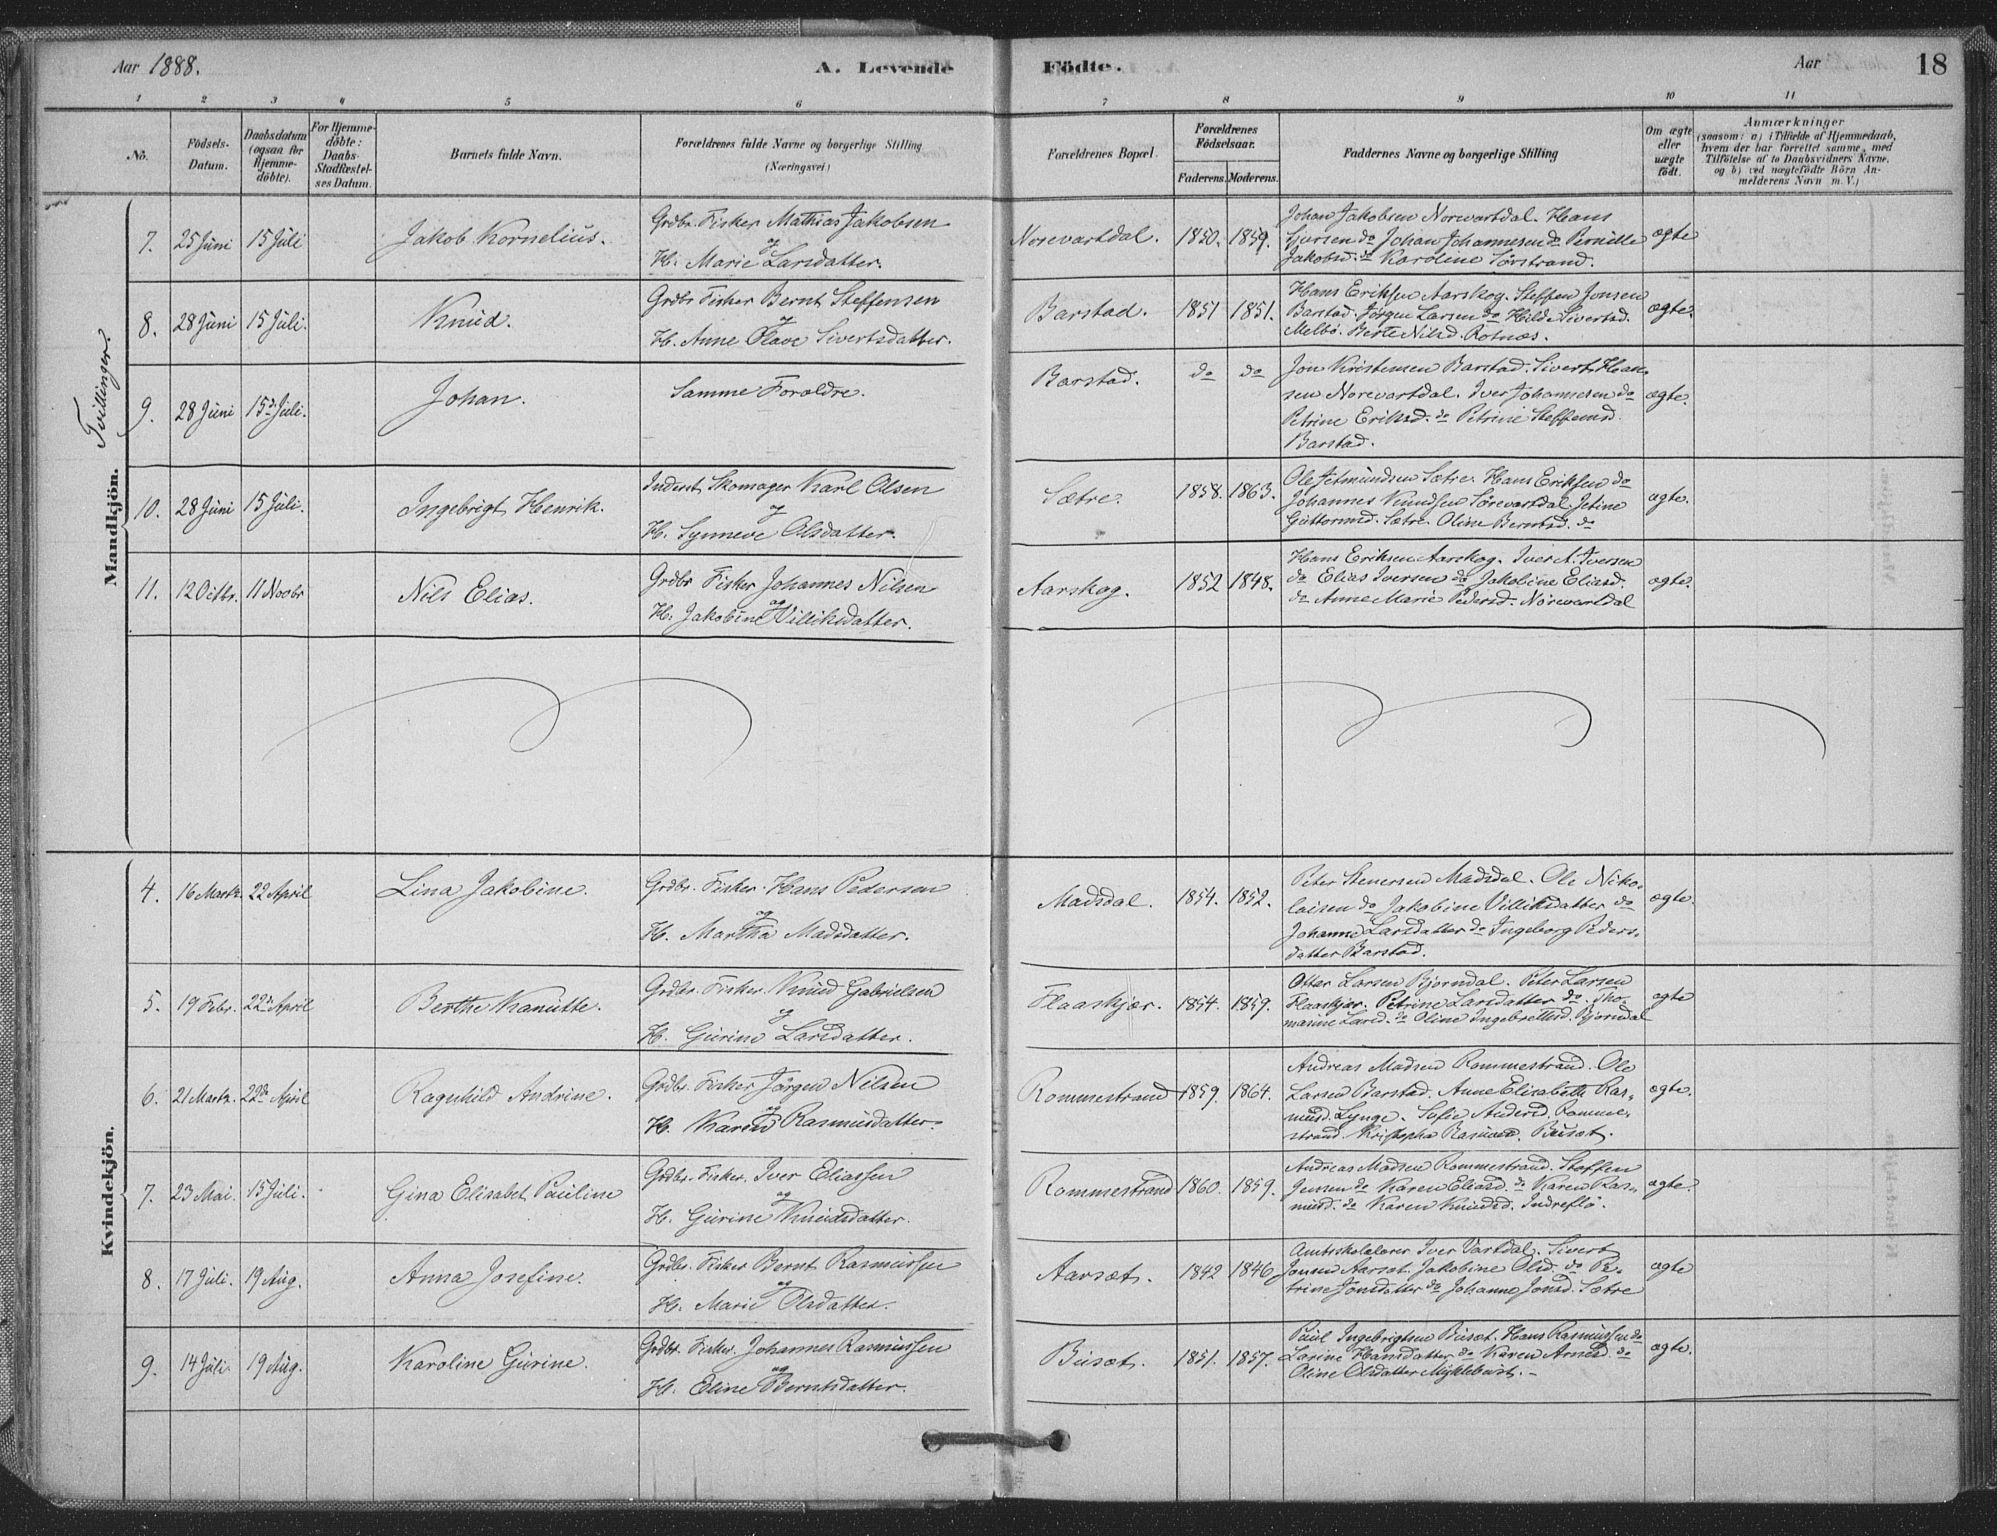 Aar 1888.
A. Levende
Födte.
Aar
18
1
2
3
4
5
6
7
8
9
10
11
No.
Födsels-
Datum.
Daabsdatum
(ogsaa for
Hjemme-
döbte).
For Hjemme-
döbte:
Daabs-
Stadfæstel-
ses Datum.
Barnets fulde Navn.
Forældrenes fulde Navne og borgerlige Stilling
(Næringsvei)
Forældrenes Bopæl.
Forældrenes
Födselsaar.
Faderens.
Moderens.
Faddernes Navne og borgerlige Stilling
Om ægte
eller
uægte
födt.
Anmærkninger
(saasom: a) i Tilfælde af Hjemmedaab,
hvem der har forrettet samme, med
Tilföielse af to Daabsvidners Navne,
og b) ved uægtefödte Börn An-
melderens Navn m. V.)
Mandkjön.
Tvillinger.
7. 25 Juni 15 Juli Jakob Kornelius.
Grdbr. Fisker Mathias Jakobsen
og
H. Marie Larsdatter.
Norevartdal. 1850. 1859.
Johan Jakobsen Norevartdal. Hans
do Johan Johannesen do Pernille
Jakobsd. do Karoline Sørstrand.
ægte
8. 28 Juni 15 Juli. Knud.
Grdbr Fisker Bernt Steffensen
og
H. Anne Olave Sivertsdatter.
Barstad. 1851 1851.
Hans Eriksen Aarskog. Steffen Jonsen
Barstad. Jörgen Larsen do Hilde Sivertsd.
Melbö. Berte Nilsd. Rotnæs.
ægte.
9. 28 Juni 15de Juli. Johan.
Samme Forældre.
Barstad. do do
Jon Kristensen Barstad. Sivert Han-
sen Norevartdal. Iver Johannesen do
Petrine Eriksd. do Petrine Steffensd.
Barstad.
ægte.
10. 28 Juni 15 Juli. Ingebrigt Henrik.
Inderst Skomager Karl Olsen
og
H. Synneve Olsdatter.
Sætre. 1858. 1863.
Ole Jetmundsen Sætre. Hans Eriksen do
Johannes Knudsen Sørevartdal Jetine
Guttormsd. Sætre. Oline Berntsd. do
ægte.
11. 12 Octbr. 11 Novbr Nils Elias.
Grdbr Fisker Johannes Nilsen
og
H. Jakobine Villiksdatter.
Aarskog. 1852 1848.
Hans Eriksen Aarskog. Iver A. Iversen
do Elias Iversen do Jakobine Eliasd.
do Anne Marie Pedersd. Norevartdal
ægte.
Kvindekjön.
4. 16 Marts. 22 April Lina Jakobine.
Grdbr. Fisker. Hans Pedersen
og
H. Martha Madsdatter.
Madsdal. 1854. 1852.
Peter Stenersen Madsdal. Ole Niko-
laisen do Jakobine Villiksdatter do
Johanne Larsdatter do Ingeborg Peders-
datter Barstad.
ægte.
5. 19 Febr. 22de April Berthe Kanutte.
Grdbr. Fisker. Knud Gabrielsen
og
H. Gurine Larsdatter.
Flaaskjær. 1854. 1859.
Ottar Larsen Bjorndal. Peter Larsen
Flaaskjær. Petrine Larsdatter do. Tho-
marine Larsd. do Oline Ingebretsd. Bjorndal
ægte
6. 21 Marts. 22de April Ragnhild Andrine.
Grdbr. Fisker Jörgen Nilsen
og
H. Karen Rasmusdatter.
Rommestrand 1859. 1864.
Andreas Madsen Rommestrand. Ole
Larsen Barstad. Anne Elisabeth Ras-
musd. Lynge. Sofie Andersd. Romme-
strand. Kristopha Rasmusd. Busæt.
ægte.
7. 23 Mai. 15 Juli. Gina Elisabet Pauline
Grdbr. Fisker. Iver Eliassen
og
H. Gurine Knudsdatter.
Rommestrand 1860. 1859.
Andreas Madsen Rommestrand. Steffen
Jensen do Karen Eliasd. do Karen Ras-
musd. do Karen Knudsd. Indreflö.
ægte.
8. 17 Juli. 19 Aug. Anna Josefine.
Grdbr. Fisker Bernt Rasmussen
og
H. Marie Olsdatter.
Aarsæt. 1842 1846
Amtsskolelærer Iver Vartdal. Sivert
Jonsen Aarsæt. Jakobine Olsd. do Pe-
trine Jonsdatter do Johanne Jonsd. Sætre
ægte
9. 14 Juli 19 Aug. Karoline Gurine.
Grdbr. Fisker. Johannes Rasmussen
og
H. Eline Berntsdatter.
Busæt. 1851. 1857.
Paul Ingebrigtsen Busæt. Hans Rasmussen do
Larine Hansdatter do Karen Arnesd. do
Oline Olsdatter Myklebust.
ægte.